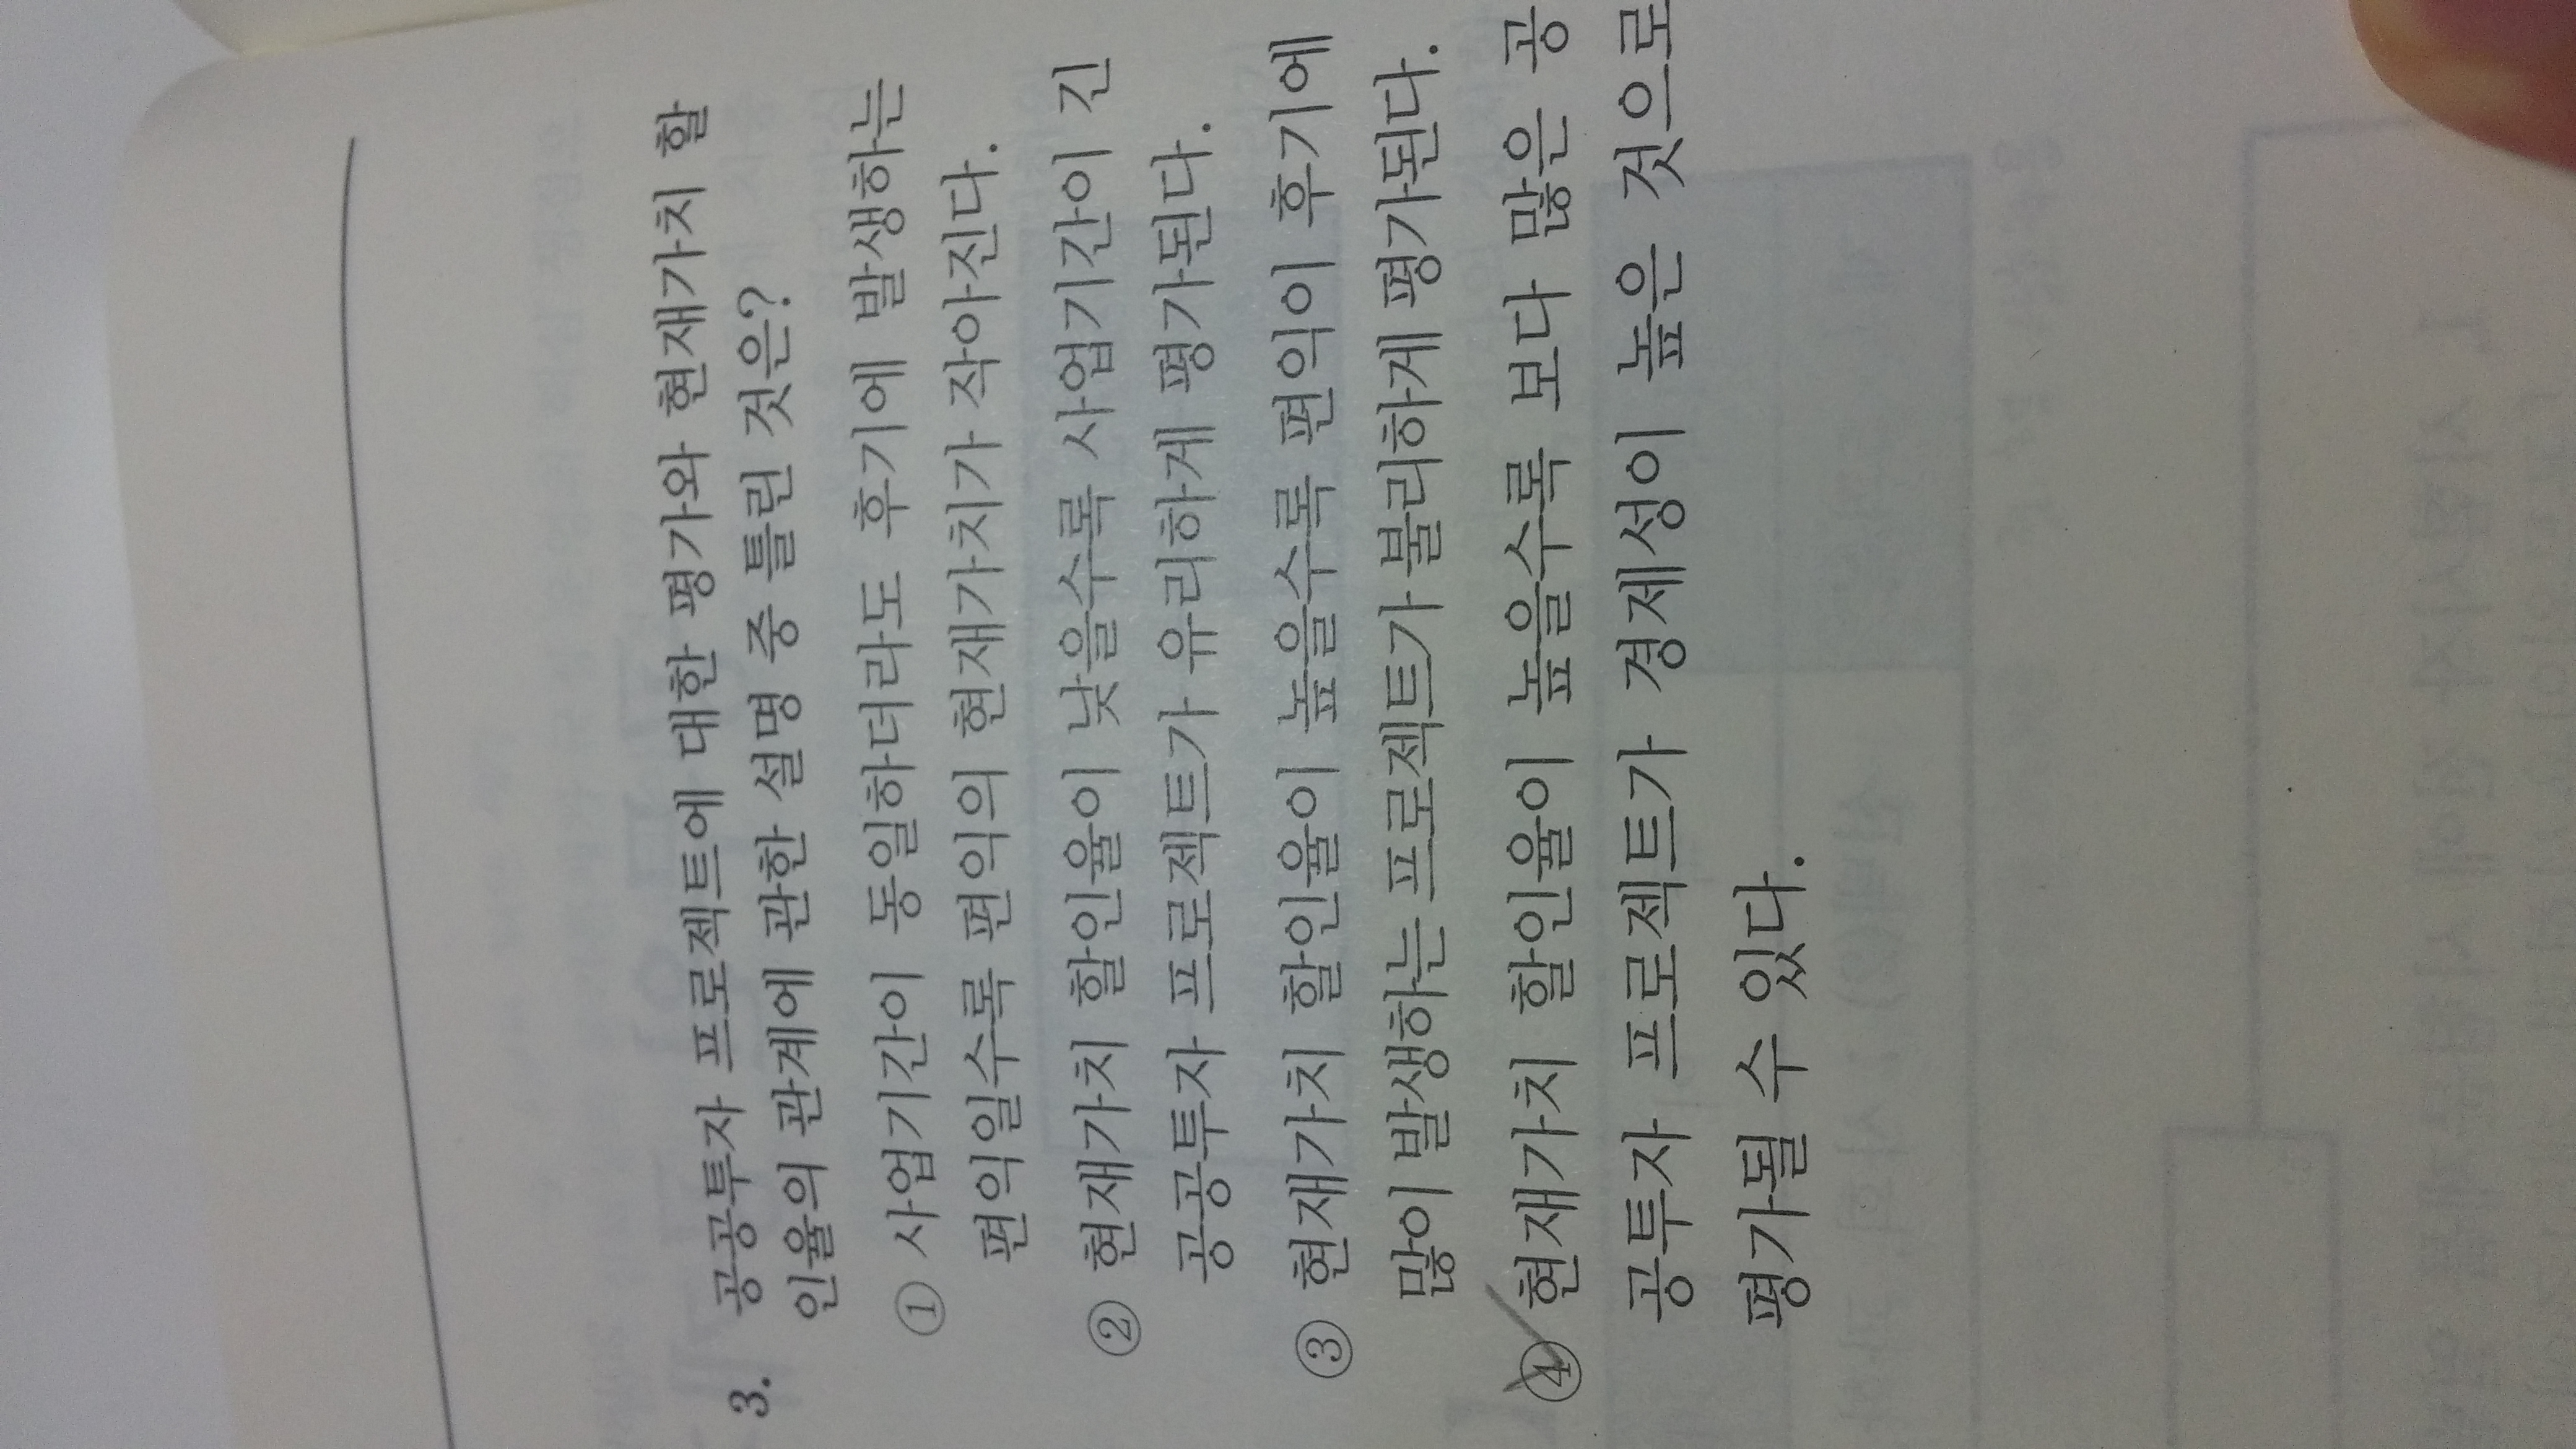 3. 공공투자 프로젝트에 대한 평가와 현재가치 할
인율의 관계에 관한 설명 중 틀린 것은?
① 사업기간이 동일하더라도 후기에 발생하는
편익일수록 편익의 현재가치가 작아진다.
② 현재가치 할인율이 낮을수록 사업기간이 긴
공공투자 프로젝트가 유리하게 평가된다.
③ 현재가치 할인율이 높을수록 편익이 후기에
많이 발생하는 프로젝트가 불리하게 평가된다.
④ 현재가치 할인율이 높을수록 보다 많은 공
공투자 프로젝트가 경제성이 높은 것으로
평가될 수 있다.